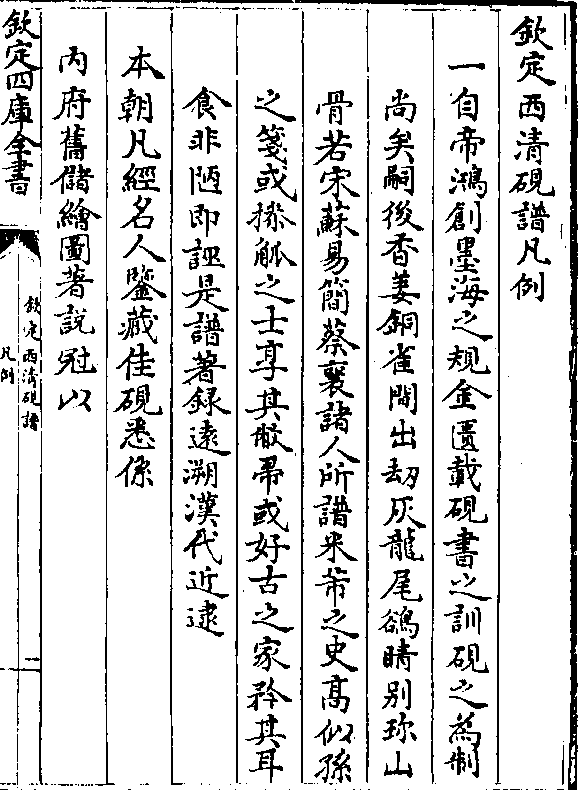 欽定西清硯譜凡例
一自帝鴻創墨海之規金匱載硯書之訓硯之為制
尚矣嗣後香姜銅雀間出劫灰龍尾鵒睛别珍山
骨若宋蘇易簡蔡襄諸人所譜米芾之史髙似孫
之箋或摻觚之士享其敝帚或好古之家矜其耳
食非陋即誣是譜著録逺溯漢代近逮
本朝凡經名人鑒藏佳硯悉係
内府舊儲繪圖著說冠以
欽定四庫全書
欽定西清硯譜
凡例
一